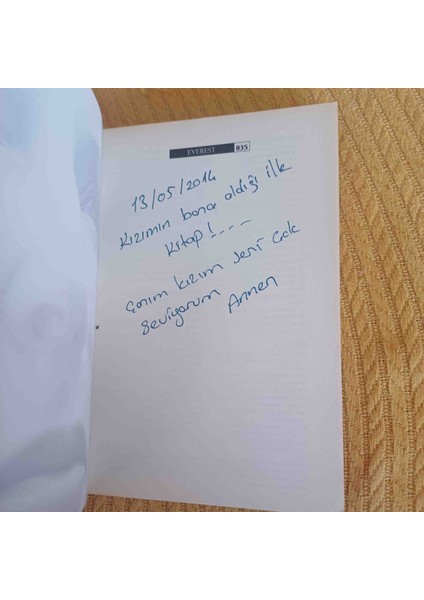 EVEREST 835
13/05/2014
Kızımın bana aldığı ilk
kitap!----
Canım kızım seni çok
seviyorum Annen